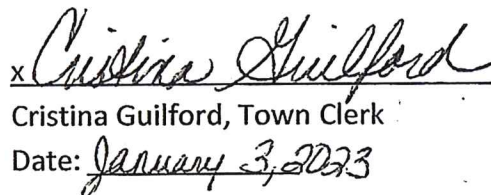 x Cristina Guilford
Cristina Guilford, Town Clerk
Date: January 3, 2023